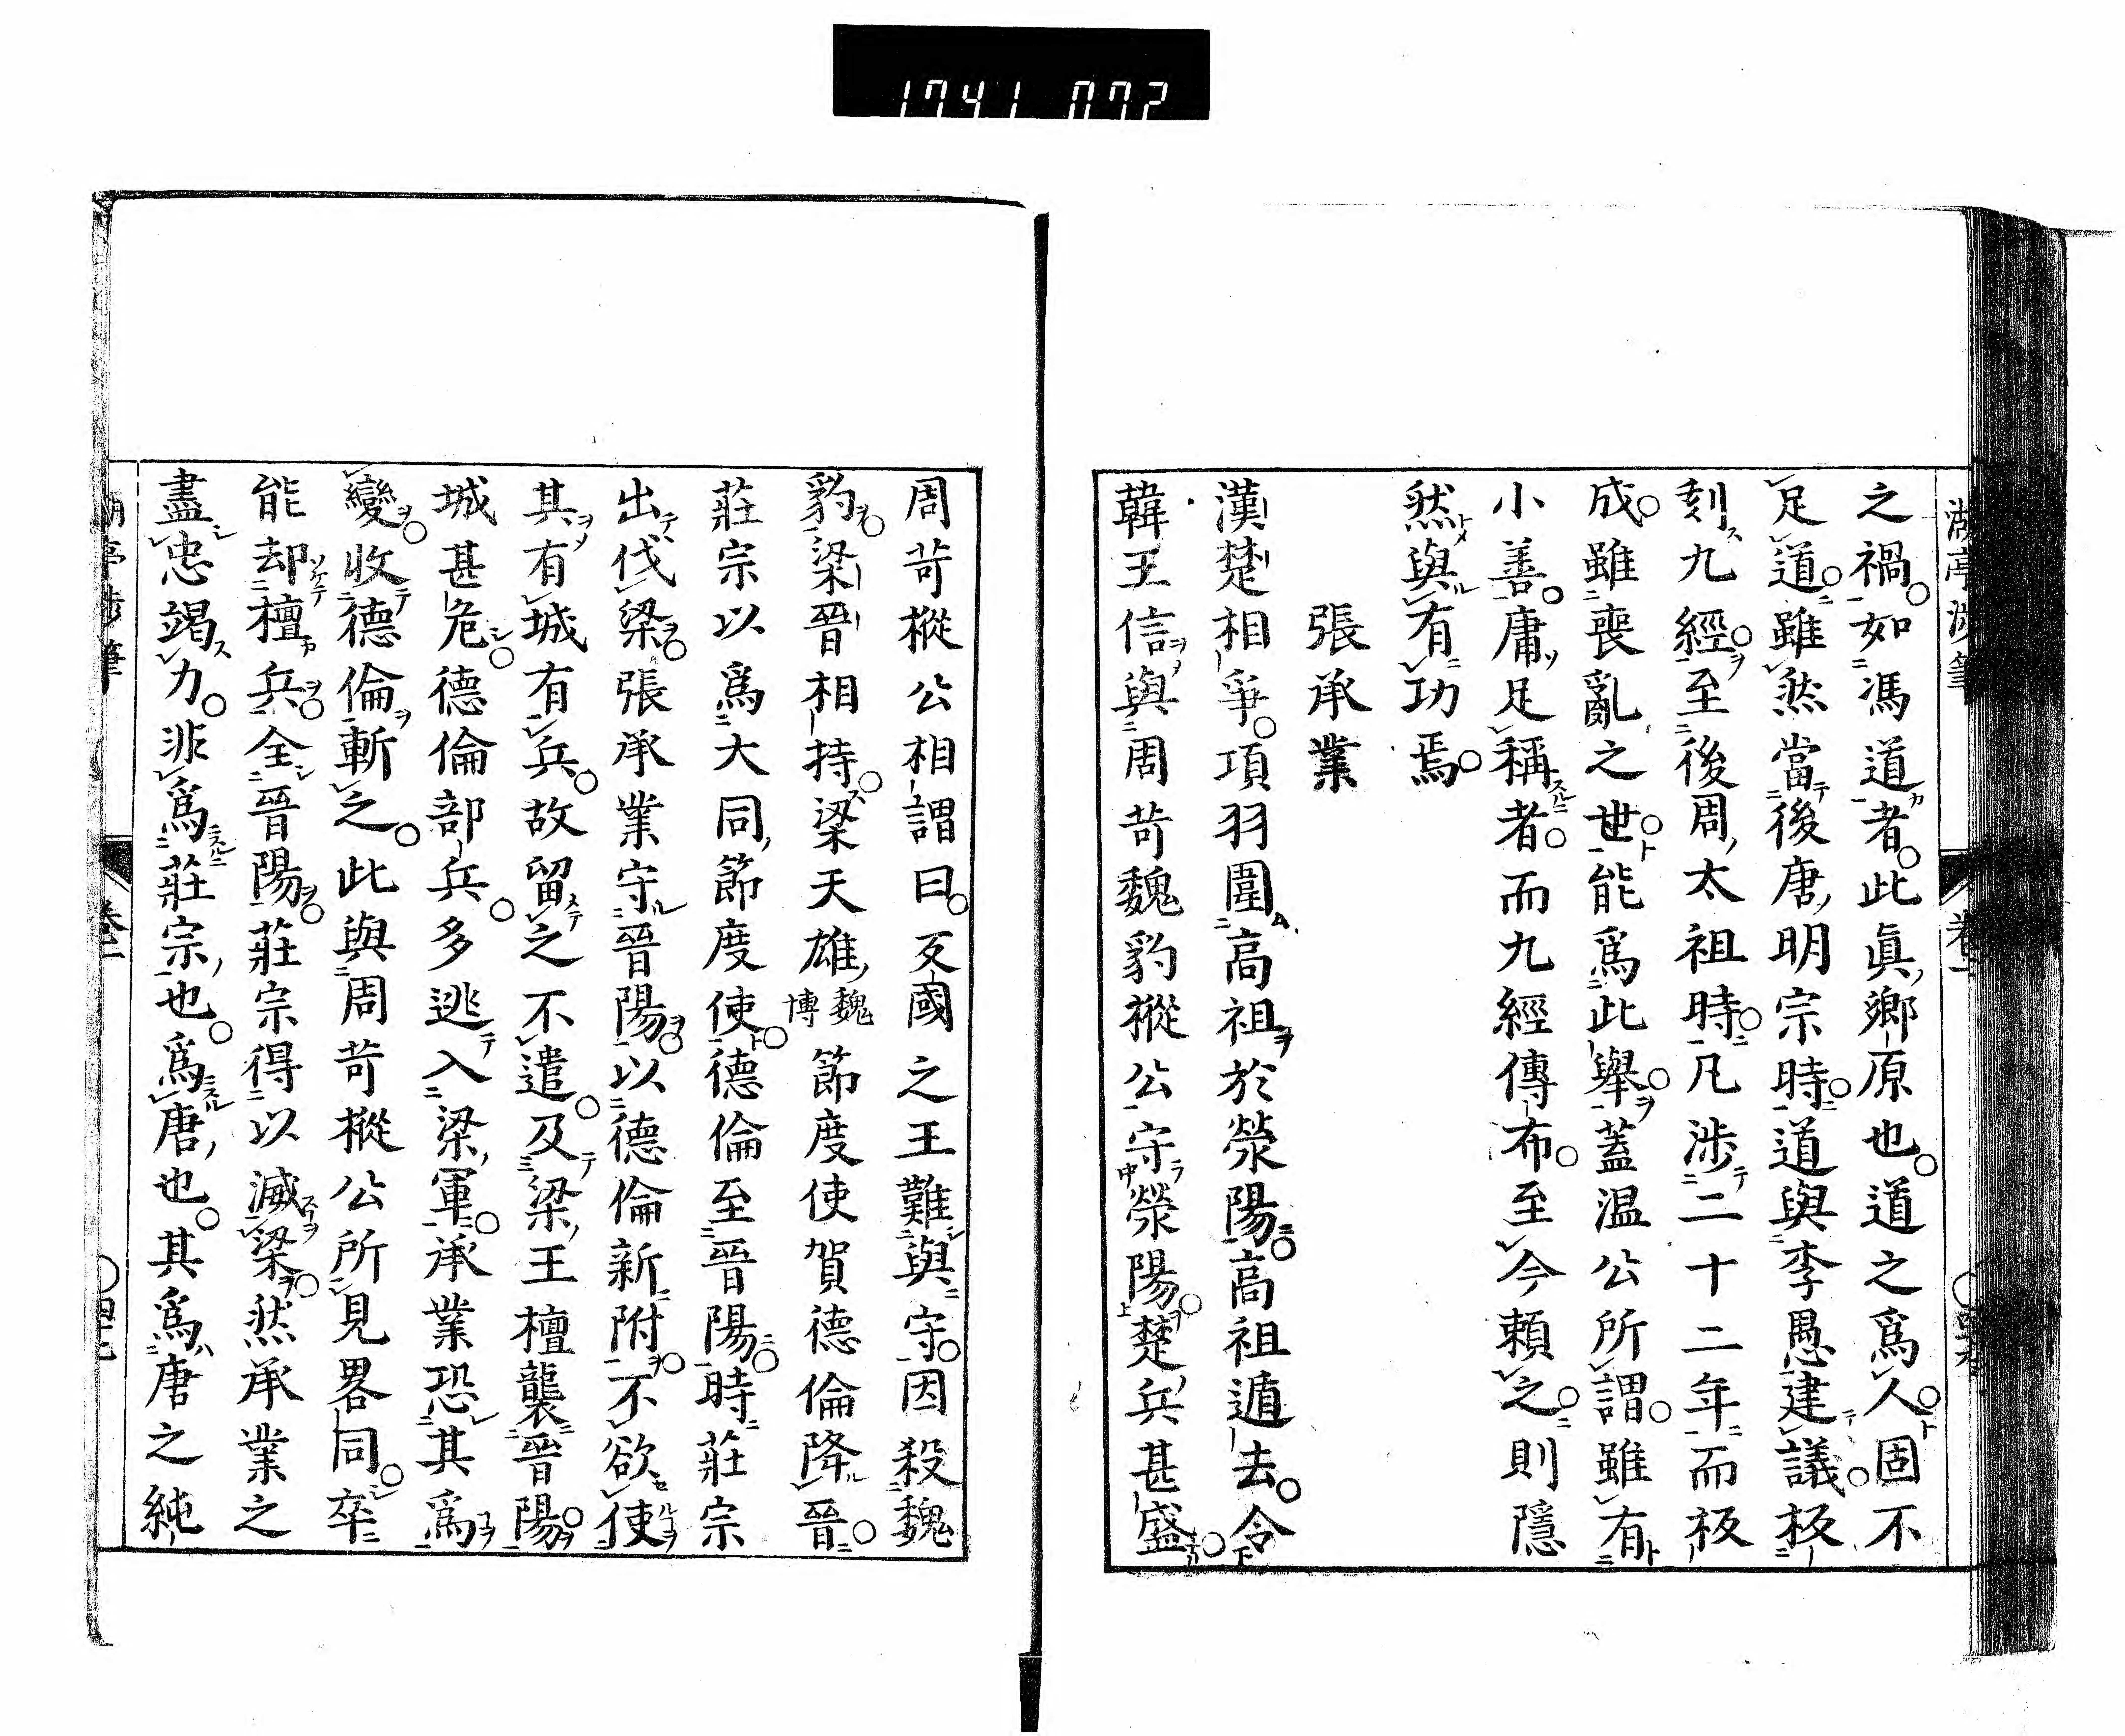 1741 072
之禍。如馮道者。此眞鄉原也。道之爲人。固不
足道。雖然當後唐明宗時。道與李愚建議。板
刻九經。至後周太祖時。凡涉二十二年而板
成。雖喪亂之世。能爲此舉。蓋溫公所謂。雖有
小善。庸足稱者。而九經傳布。至今賴之。則隱
然與有功焉。
張承業
漢楚相爭。項羽圍高祖於滎陽。高祖遁去。令
韓王信與周苛魏豹樅公守滎陽。楚兵甚盛。
周苛樅公相謂曰。反國之王難與守。因殺魏
豹。梁晉相持。梁天雄魏博節度使賀德倫降晉。
莊宗以爲大同節度使。德倫至晉陽。時莊宗
出伐梁。張承業守晉陽。以德倫新附。不欲使
其有城有兵。故留之不遣。及梁王檀襲晉陽。
城甚危。德倫部兵。多逃入梁軍。承業恐其爲
變。收德倫斬之。此與周苛樅公所見畧同。卒
能却檀兵。全晉陽。莊宗得以滅梁。然承業之
盡忠竭力。非爲莊宗也。爲唐也。其爲唐之純
亭涉筆